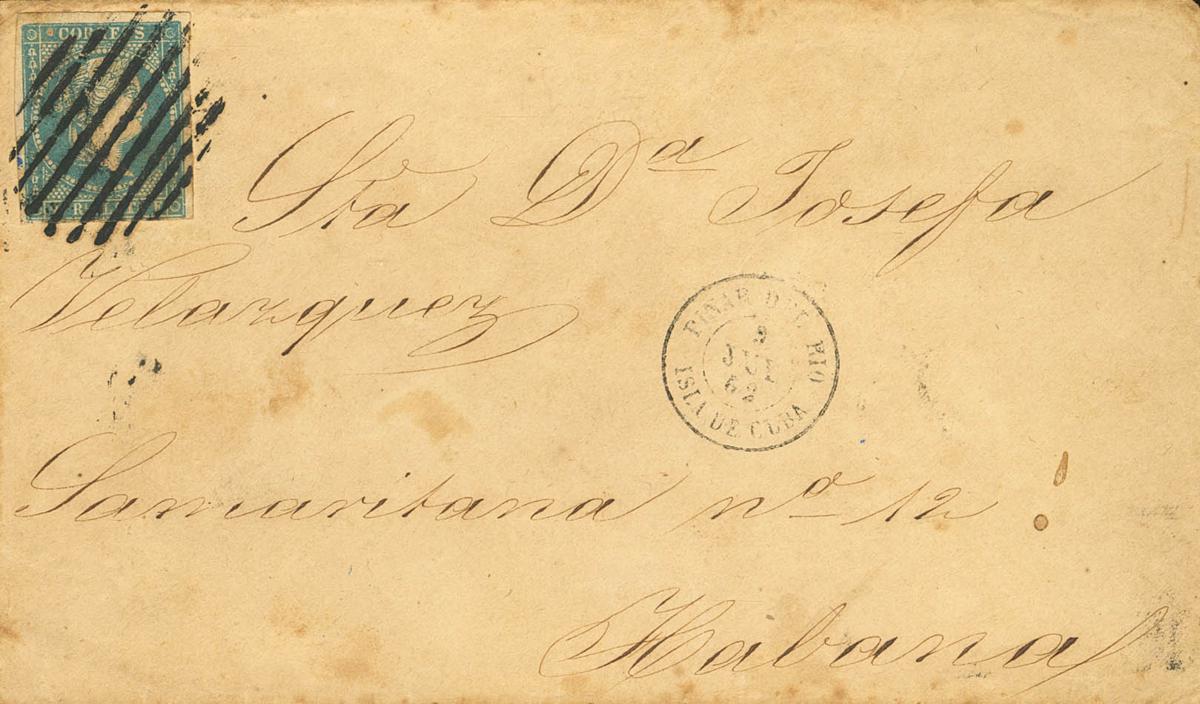 CORREOS
Sta Dª Josefa
Velazquez
PINAR DEL RIO
JUL
62
ISLA DE CUBA
Samaritana nº 12
Habana